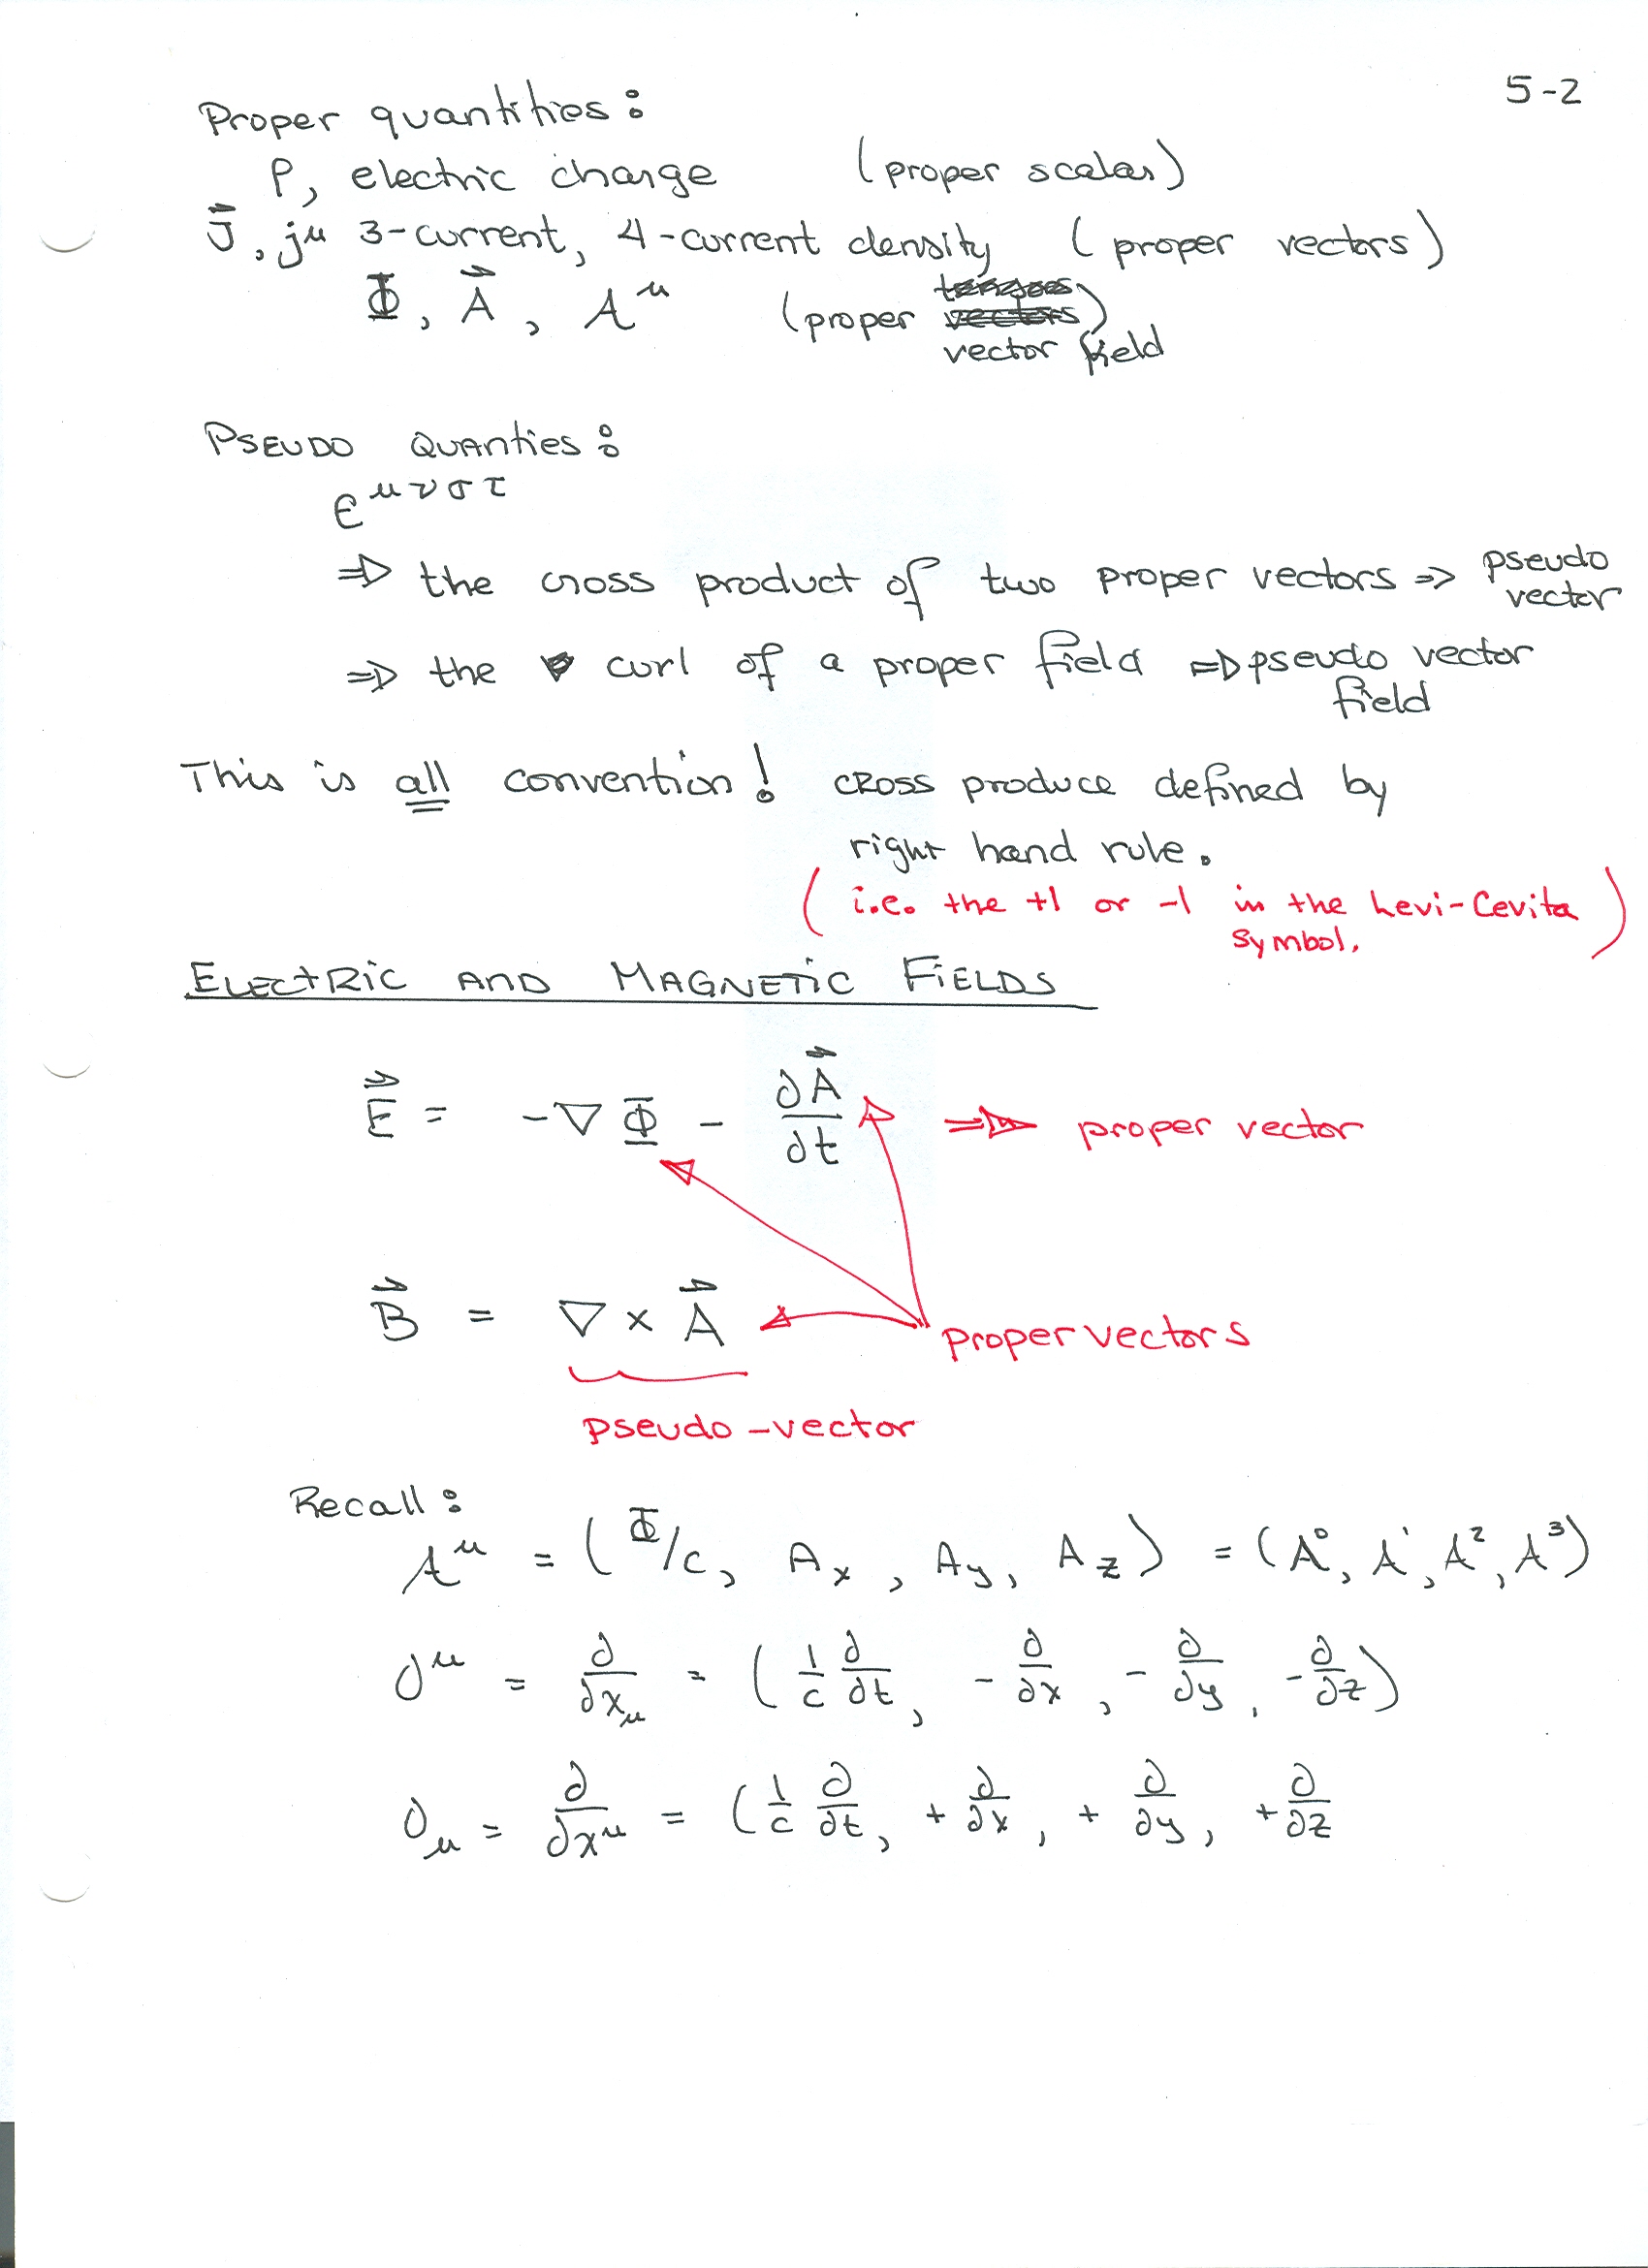 5-2
Proper quantities:
ρ, electric charge (proper scalar)
J⃗, jᵘ 3-current, 4-current density (proper vectors)
Φ, A⃗, Aᵘ (proper tensors vectors)
vector field
PSEUDO QUANTIES:
ϵ^μνστ
⇒ the cross product of two proper vectors ⇒ pseudo vector
⇒ the curl of a proper field ⇒ pseudo vector
field
This is all convention! CROSS produce defined by
right hand rule.
(i.e. the +1 or -1 in the Levi-Cevita
symbol.)
ELECTRIC AND MAGNETIC FIELDS
E⃗ = -∇Φ - ∂A⃗/∂t ⇒ proper vector
B⃗ = ∇ × A⃗ proper vectors
pseudo-vector
Recall:
A^μ = (Φ/c, Ax, Ay, Az) = (A⁰, A¹, A², A³)
∂^μ = ∂/∂x_μ = (1/c ∂/∂t, -∂/∂x, -∂/∂y, -∂/∂z)
∂_μ = ∂/∂x^μ = (1/c ∂/∂t, +∂/∂x, +∂/∂y, +∂/∂z